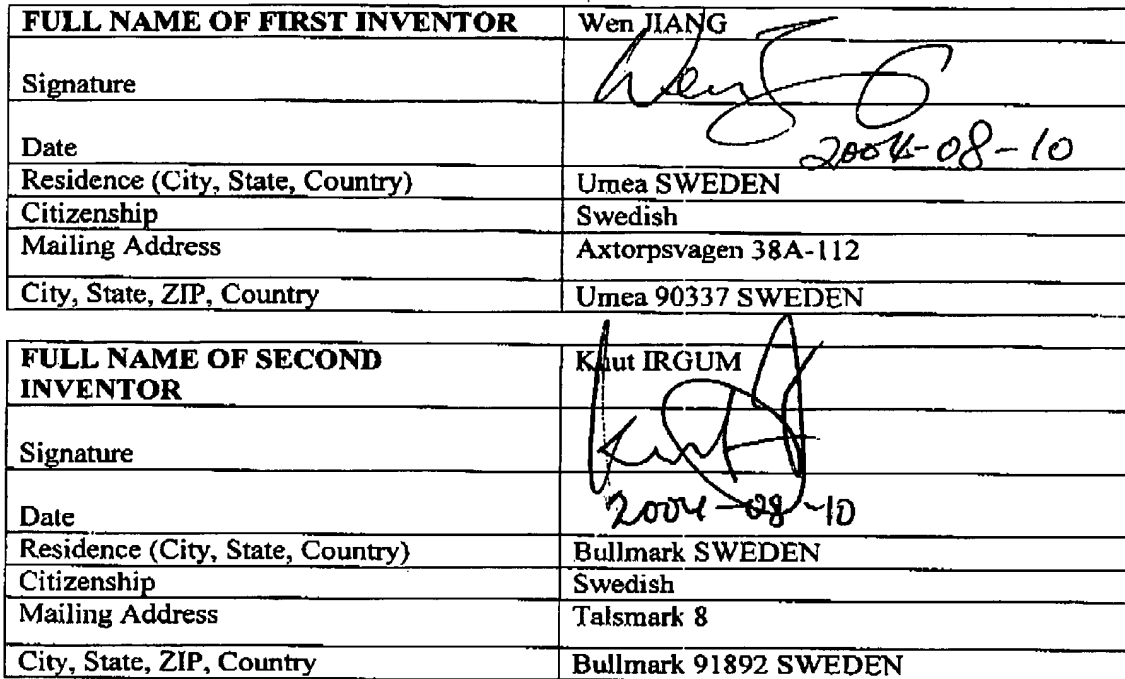 FULL NAME OF FIRST INVENTOR Wen JIANG
Signature Wen
Date 2004-08-10
Residence (City, State, Country) Umea SWEDEN
Citizenship Swedish
Mailing Address Axtorpsvagen 38A-112
City, State, ZIP, Country Umea 90337 SWEDEN
FULL NAME OF SECOND Knut IRGUM
INVENTOR
Signature
Date 2004-08-10
Residence (City, State, Country) Bullmark SWEDEN
Citizenship Swedish
Mailing Address Talsmark 8
City, State, ZIP, Country Bullmark 91892 SWEDEN